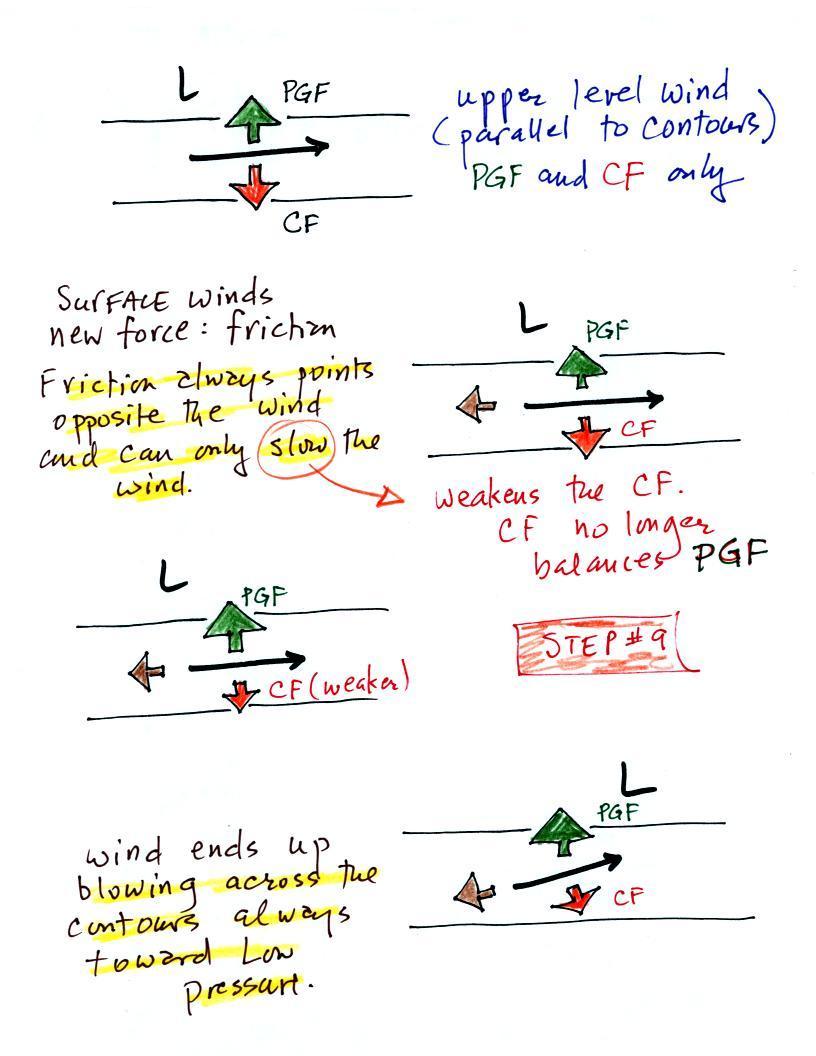 L
PGF
CF
upper level wind
(parallel to contours)
PGF and CF only
SURFACE winds
new force: friction
Friction always points
opposite the wind
and can only slow the
wind.
L
PGF
CF
weakens the CF.
CF no longer
balances PGF
L
PGF
CF (weaker)
STEP #9
wind ends up
blowing across the
contours always
toward Low
pressure.
L
PGF
CF